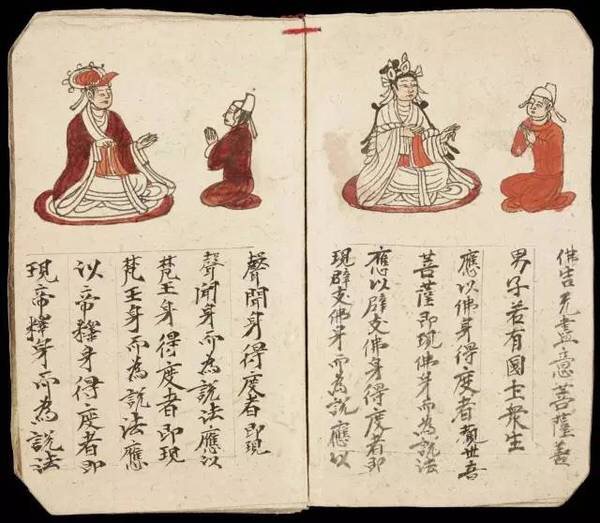 佛告无盡意菩薩善
男子若有國土衆生
應以佛身得度者觀世音
菩薩即現佛身而為說法
應以辟支佛身得度者即
現辟支佛身而為說應以
聲聞身得度者即現
聲聞身而為說法應以
梵王身得度者即現
梵王身而為說法應
以帝釋身得度者即
現帝釋身而為說法